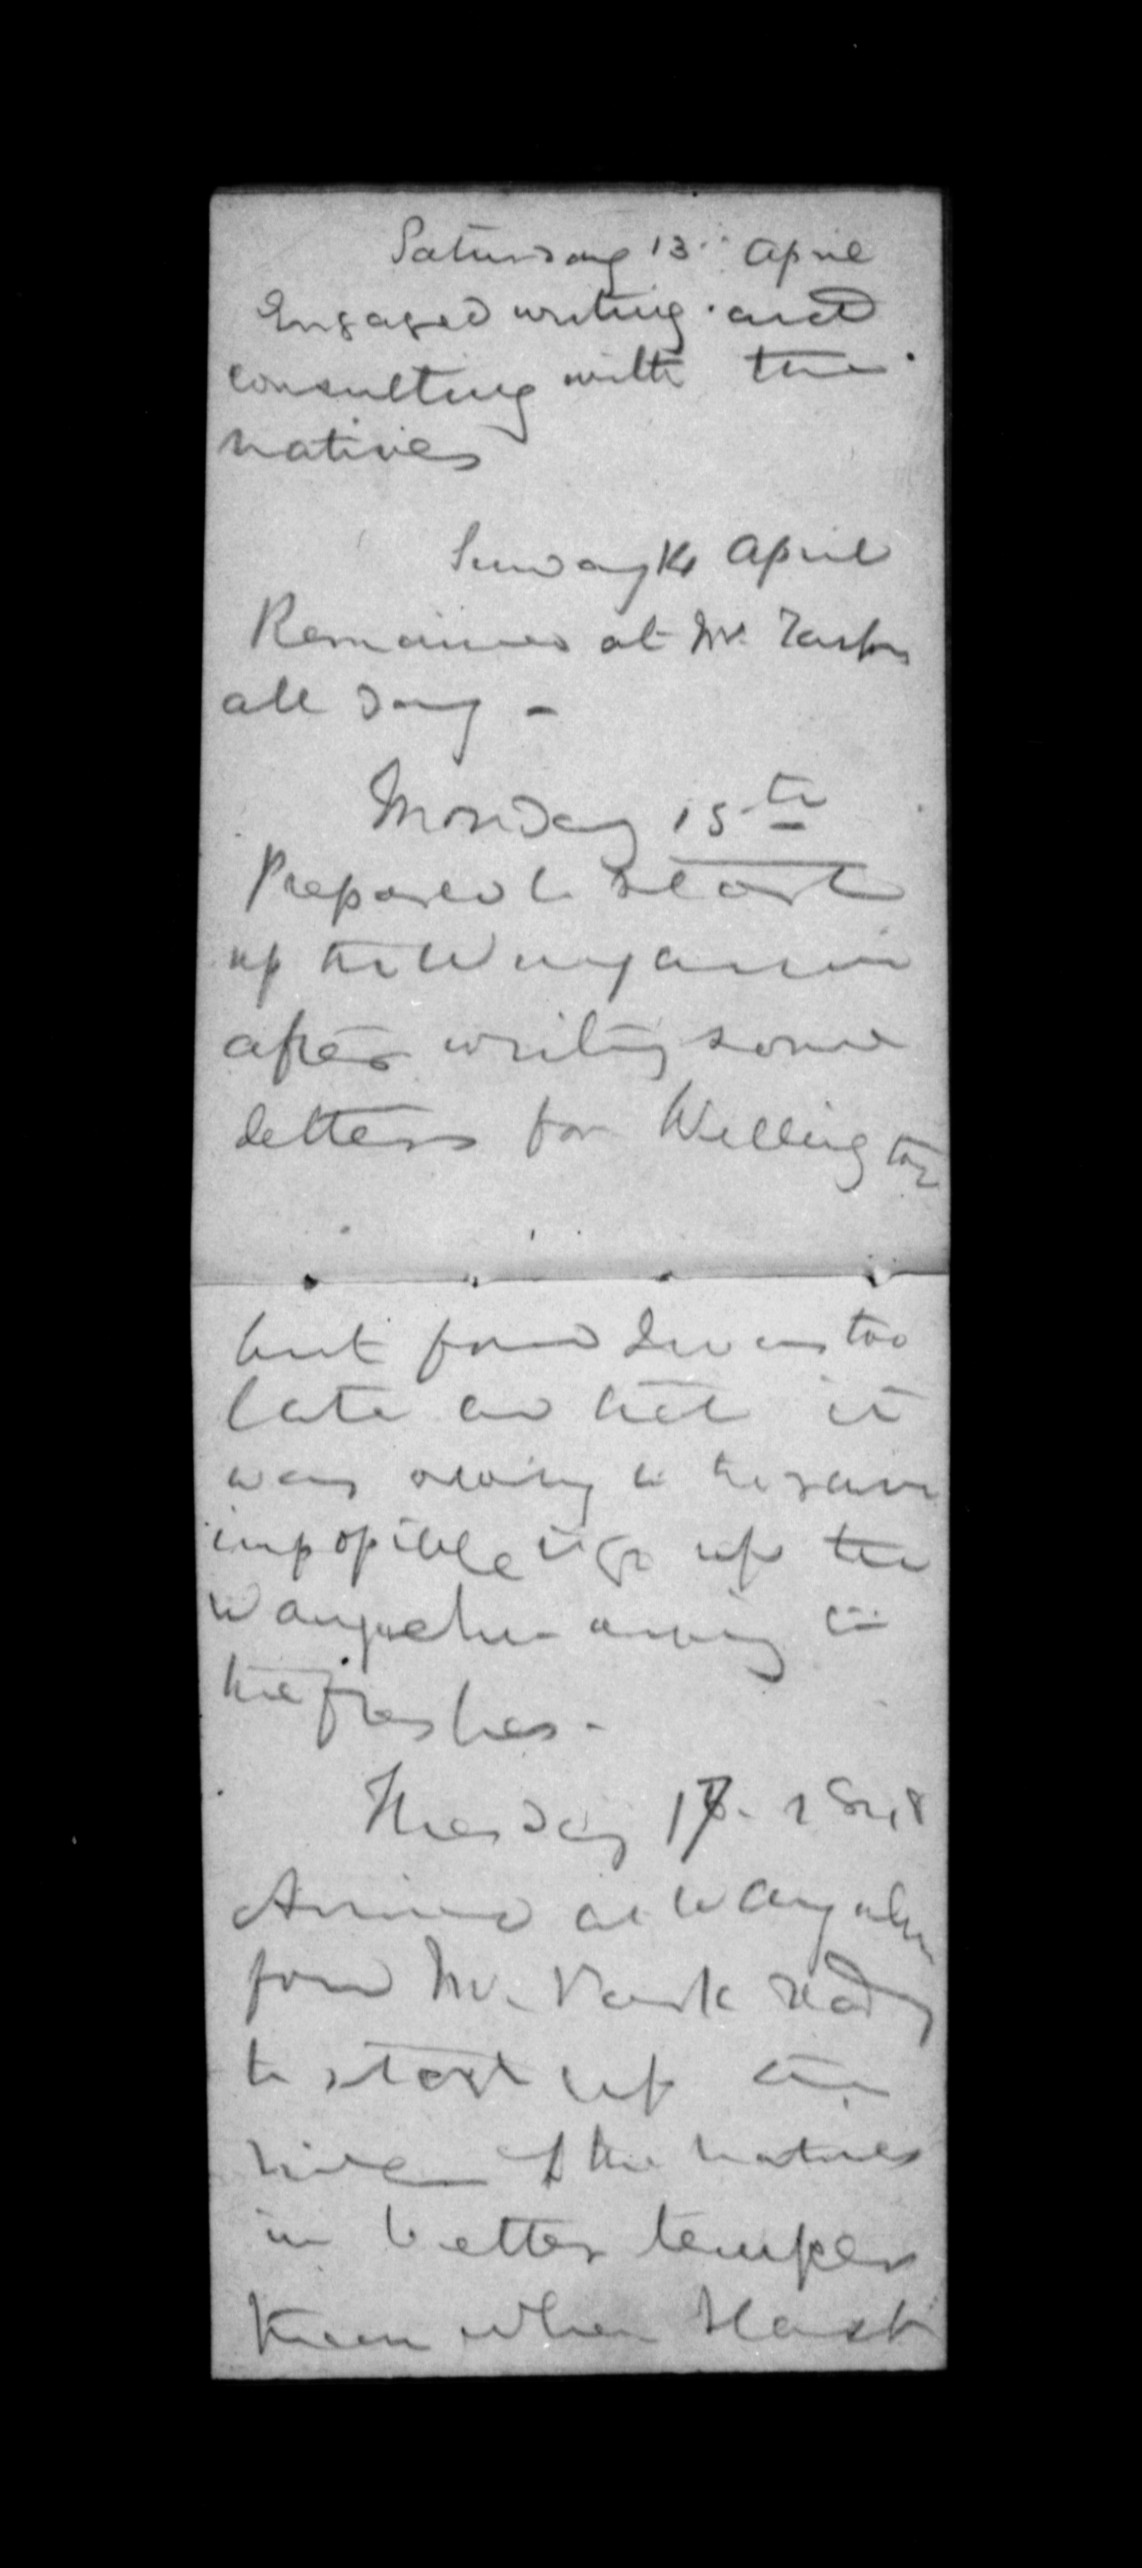 Saturday 13th April
Engaged writing and
consulting with the
natives
Sunday 14 April
Remained at Mr.
all day -
Monday 15th
Prepared to start
up the Wanganui
after writing some
letters for Wellington
but found I was too
late and that it
was owing to the rain
impossible to go up the
Wangaehu owing to
the freshes -
Tuesday 16
Arrived at Wangaehu
found Mr. Park ready
to start up the
river & the natives
in better temper
than when I last